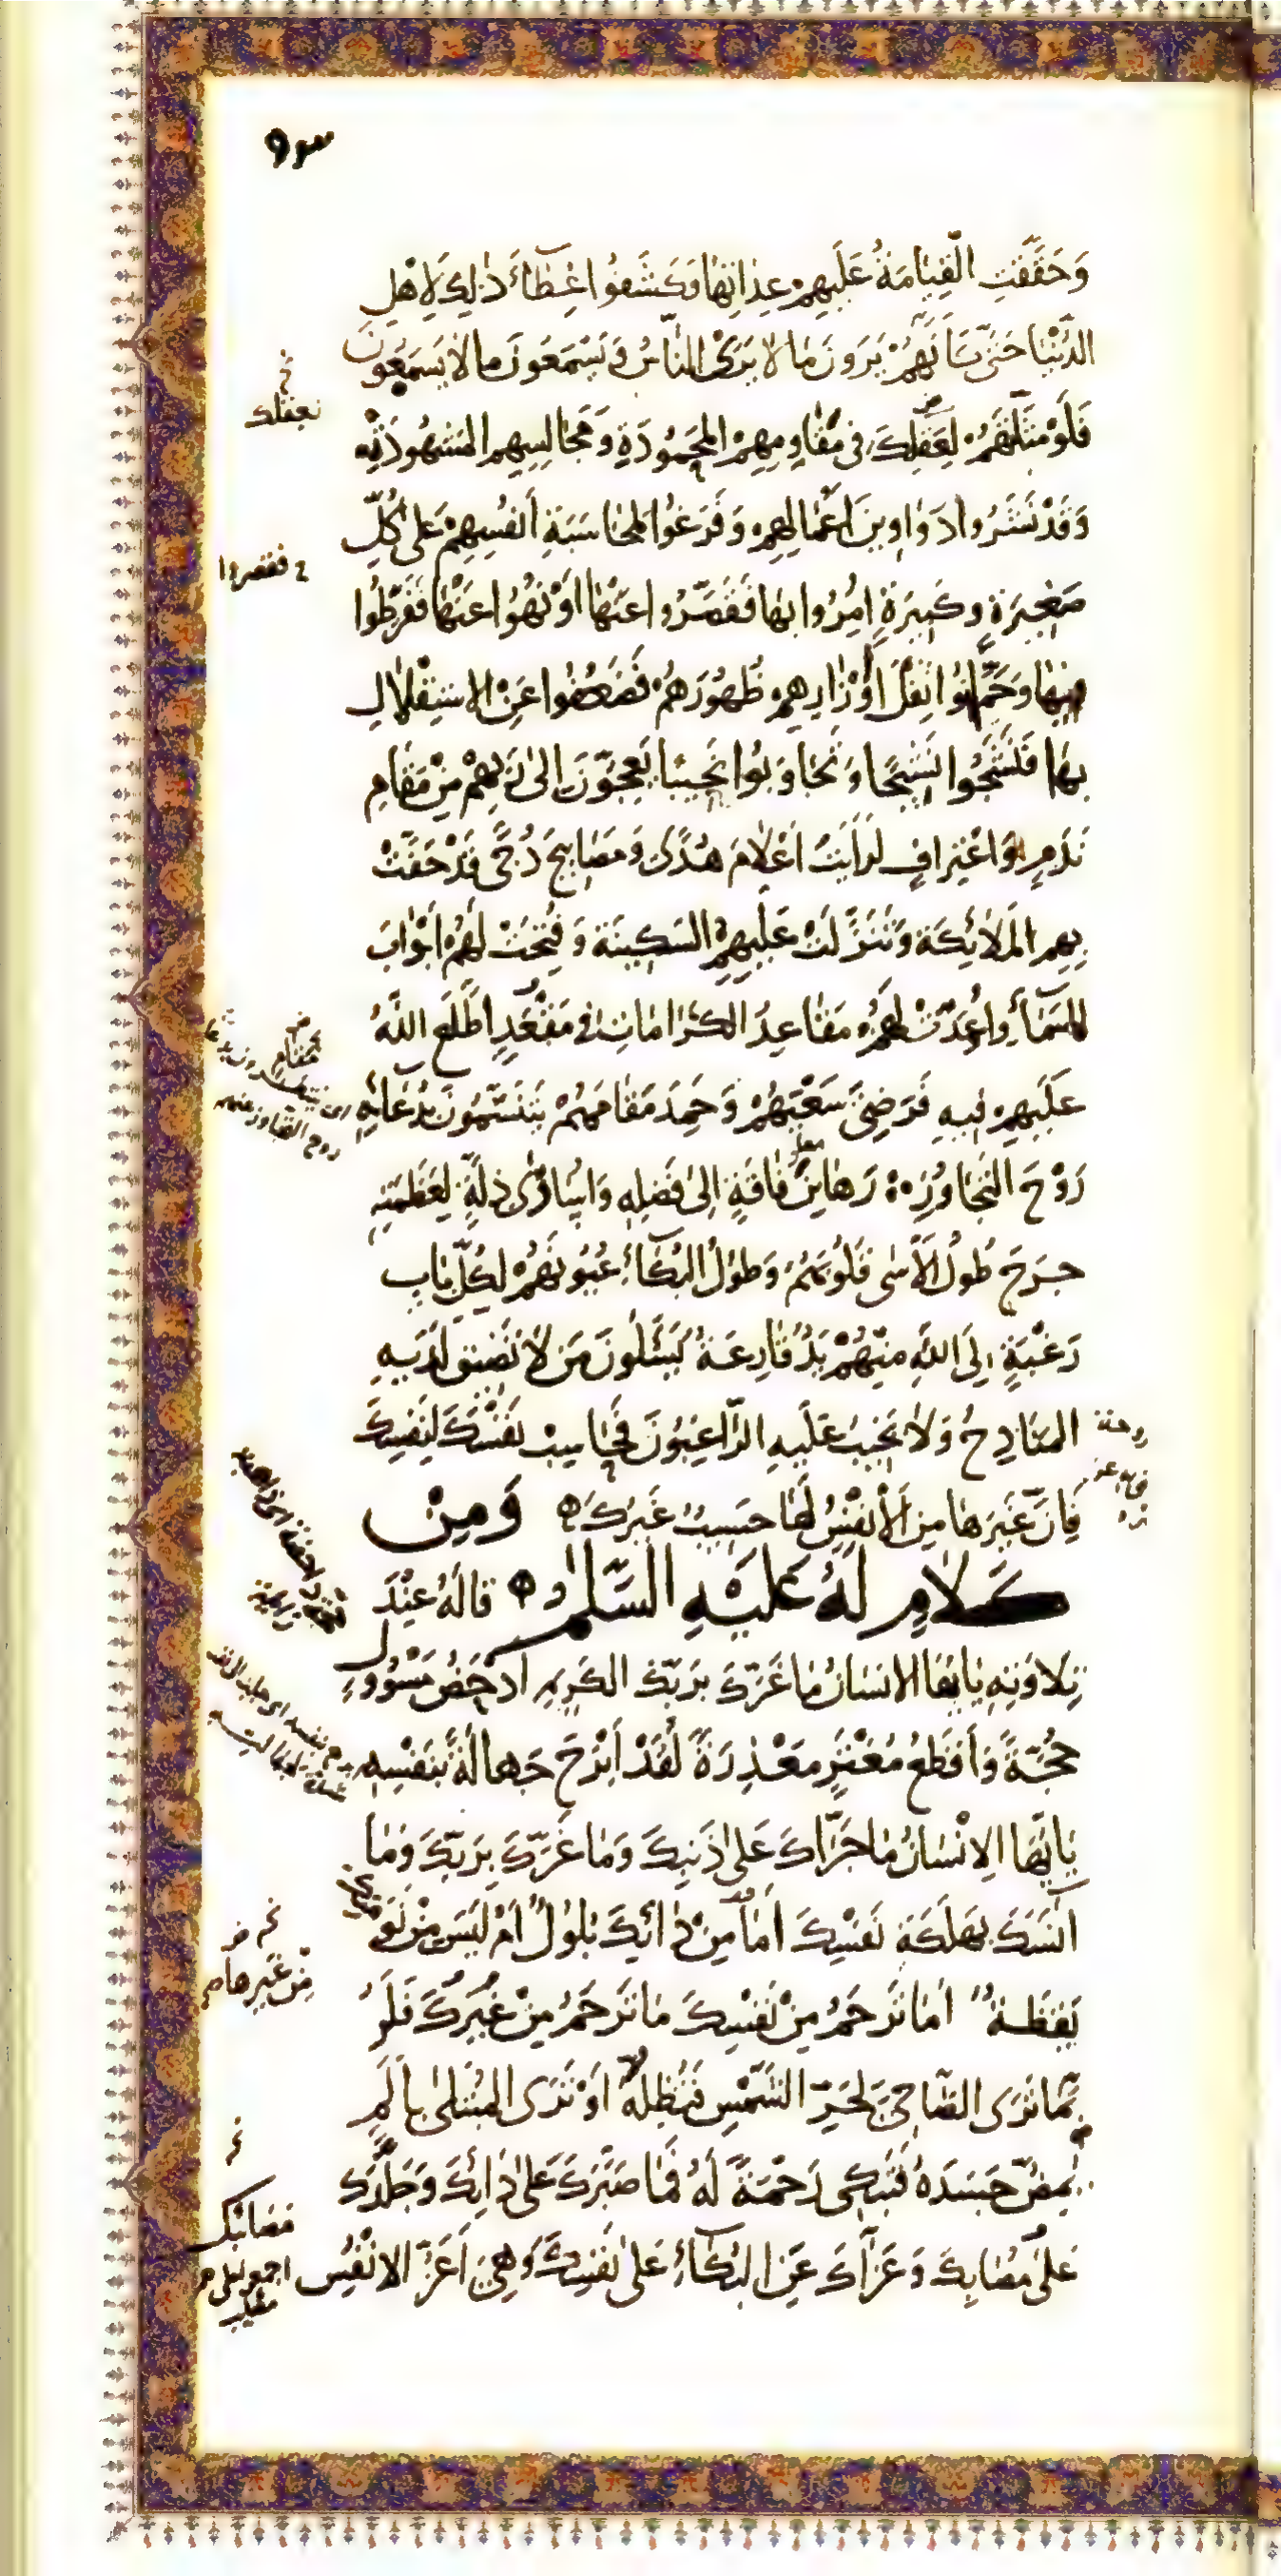 وَحَقَّقَتِ الْقِيَامَةُ عَلَيْهِمْ عِدَاتِهَا فَكَشَفُوا غِطَاءَ ذٰلِكَ لِاَهْلِ
الدُّنْيَا حَتّٰى كَاَنَّهُمْ يَرَوْنَ مَا لَا يَرَى النَّاسُ وَ يَسْمَعُونَ مَا لَا يَسْمَعُونَ
فَلَوْ مَثَّلْتَهُمْ لِعَقْلِكَ فِى مَقَاوِمِهِمُ الْمَحْمُودَةِ وَ مَجَالِسِهِمِ الْمَشْهُودَةِ
وَ قَدْ نَشَرُوا دَوَاوِينَ اَعْمَالِهِمْ وَ فَرَغُوا لِمُحَاسَبَةِ اَنْفُسِهِمْ عَلٰى كُلِّ
صَغِيرَةٍ وَ كَبِيرَةٍ اُمِرُوا بِهَا فَقَصَّرُوا عَنْهَا اَوْ نُهُوا عَنْهَا فَفَرَّطُوا
فِيهَا وَ حَمَّلُوا ثِقْلَ اَوْزَارِهِمْ ظُهُورَهُمْ فَضَعُفُوا عَنِ الْاِسْتِقْلَالِ
بِهَا فَنَشَجُوا نَشِيجًا وَ تَجَاوَبُوا نَحِيبًا يَعِجُّونَ اِلٰى رَبِّهِمْ مِنْ مَقَامِ
نَدَمٍ وَ اعْتِرَافٍ لَرَاَيْتَ اَعْلَامَ هُدًى وَ مَصَابِيحَ دُجًى قَدْ حَفَّتْ
بِهِمِ الْمَلَائِكَة وَ تَنَزَّلَتْ عَلَيْهِمِ السَّكِينَة وَ فُتِحَتْ لَهُمْ اَبْوَابُ
السَّمَاءِ وَ اُعِدَّتْ لَهُمْ مَقَاعِدُ الْكَرَامَاتِ فِى مَقْعَدٍ اطَّلَعَ اللّٰهُ
عَلَيْهِمْ فِيهِ فَرَضِىَ سَعْيَهُمْ وَ حَمِدَ مَقَامَهُمْ يَتَنَسَّمُونَ بِدُعَائِهِ
رَوْحَ التَّجَاوُزِ رَهَائِنُ فَاقَةٍ اِلٰى فَضْلِهِ وَ اُسَارٰى ذِلَّةٍ لِعَظَمَتِهِ
جَرَحَ طُولُ الْاَسٰى قُلُوبَهُمْ وَ طُولُ الْبُكَاءِ عُيُونَهُمْ لِكُلِّ بَابِ
رَغْبَةٍ اِلَى اللّٰهِ مِنْهُمْ يَدٌ قَارِعَةٌ يَسْئَلُونَ مَنْ لَا تَضِيقُ لَدَيْهِ
الْمَنَادِحُ وَ لَا يَخِيبُ عَلَيْهِ الرَّاغِبُونَ فَحَاسِبْ نَفْسَكَ لِنَفْسِكَ
فَاِنَّ غَيْرَهَا مِنَ الْاَنْفُسِ لَهَا حَسِيبٌ غَيْرُكَ وَ مِنْ
كَلَامٍ لَهُ عَلَيْهِ السَّلَامُ قَالَهُ عِنْدَ
تِلَاوَتِهِ يَا اَيُّهَا الْاِنْسَانُ مَا غَرَّكَ بِرَبِّكَ الْكَرِيمِ اَدْحَضُ مَسْؤُولٍ
حُجَّةً وَ اَقْطَعُ مُغْتَرٍّ مَعْذِرَةً لَقَدْ اَبْرَحَ جَهَالَةً بِنَفْسِهِ
يَا اَيُّهَا الْاِنْسَانُ مَا جَرَّاَكَ عَلٰى ذَنْبِكَ وَ مَا غَرَّكَ بِرَبِّكَ وَ مَا
اٰنَسَكَ بِهَلَكَةِ نَفْسِكَ اَمَا مِنْ دَائِكَ بُلُولٌ اَمْ لَيْسَ مِنْ نَوْمَتِكَ
يَقَظَةٌ اَمَا تَرْحَمُ مِنْ نَفْسِكَ مَا تَرْحَمُ مِنْ غَيْرِكَ فَلَرُ
بَّمَا تَرَى الضَّاحِىَ لِحَرِّ الشَّمْسِ فَتُظِلُّهُ اَوْ تَرَى الْمُبْتَلٰى بِاَلَمٍ
يُمِضُّ جَسَدَهُ فَتَبْكِى رَحْمَةً لَهُ فَمَا صَبَّرَكَ عَلٰى دَائِكَ وَ جَلَّدَكَ
عَلٰى مُصَابِكَ وَ عَزَّاكَ عَنِ الْبُكَاءِ عَلٰى نَفْسِكَ وَ هِىَ اَعَزُّ الْاَنْفُسِ
بعقلك
فقصروا
مقام
روح التجاوز
مِنْ غَيْرِهَا
مصائبك